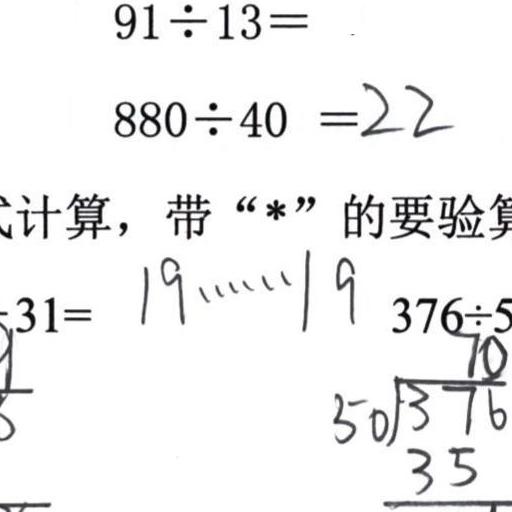 91÷13=
880÷40 =22
式计算，带“*”的要验算
÷31= 19……19 376÷5
9 70
50 376
35